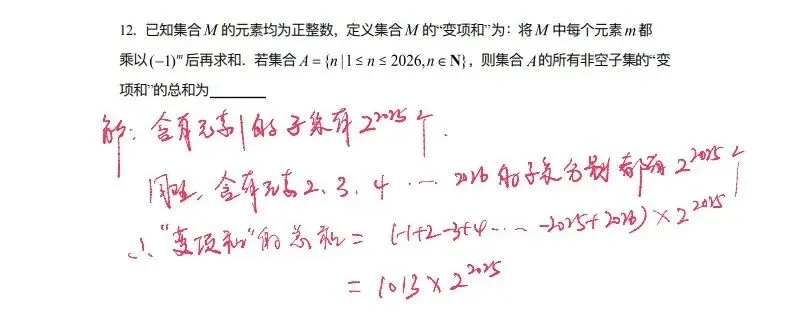 12. 已知集合 M 的元素均为正整数，定义集合 M 的“变项和”为：将 M 中每个元素 m 都
乘以 (−1)^m 后再求和．若集合 A = {n | 1 ≤ n ≤ 2026, n ∈ N}，则集合 A 的所有非空子集的“变
项和”的总和为________
解：含有元素1的子集有 2^2025 个．
同理，含有元素2、3、4 …… 2026 的子集分别都有 2^2025 个
∴ “变项和”的总和 = (−1+2−3+4 …… −2025+2026) × 2^2025
= 1013 × 2^2025